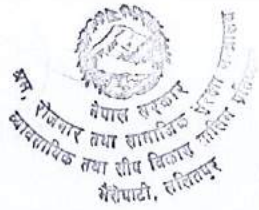 नेपाल सरकार
श्रम, रोजगार तथा सामाजिक सुरक्षा मन्त्रालय
व्यावसायिक तथा सीप विकास तालिम
भैंसेपाटी, ललितपुर